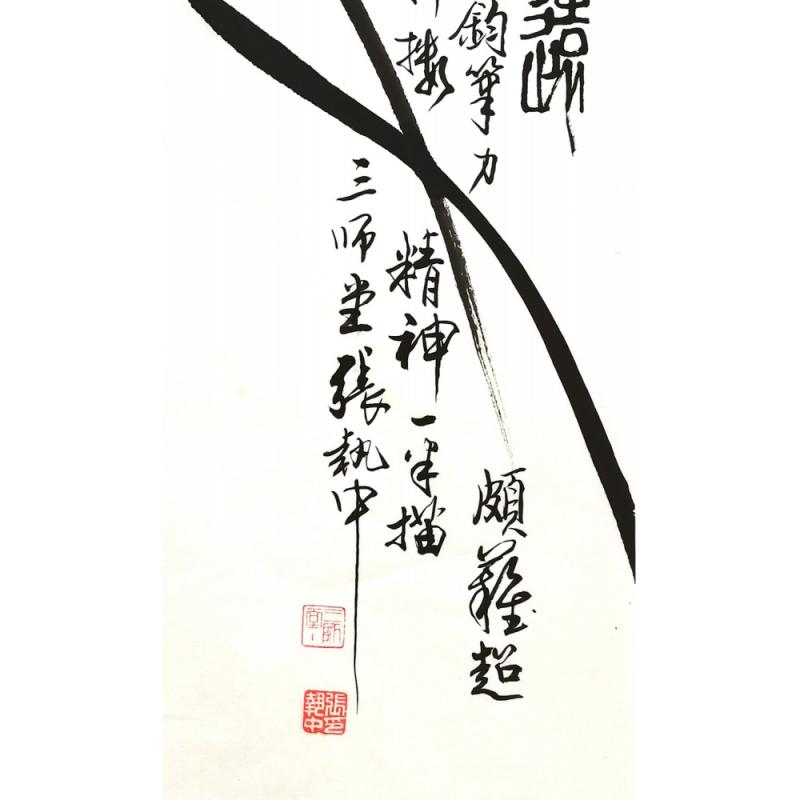 鈞筆力
頗難超
精神一半描
三師堂張執中
三師堂
張印執中